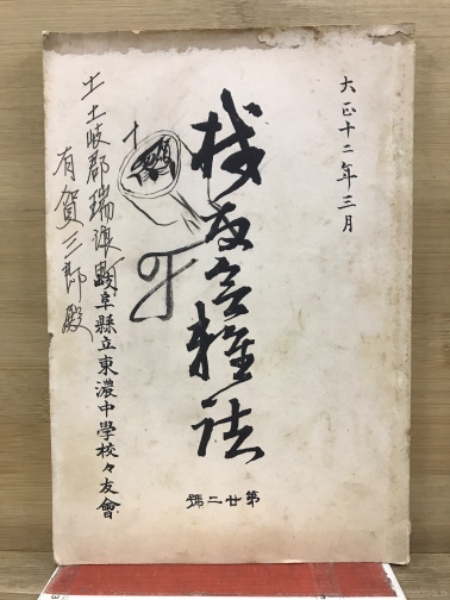 大正十二年三月
校友会雑誌
第廿二號
岐阜縣立東濃中學校々友會
土岐郡瑞浪
有賀三郎殿